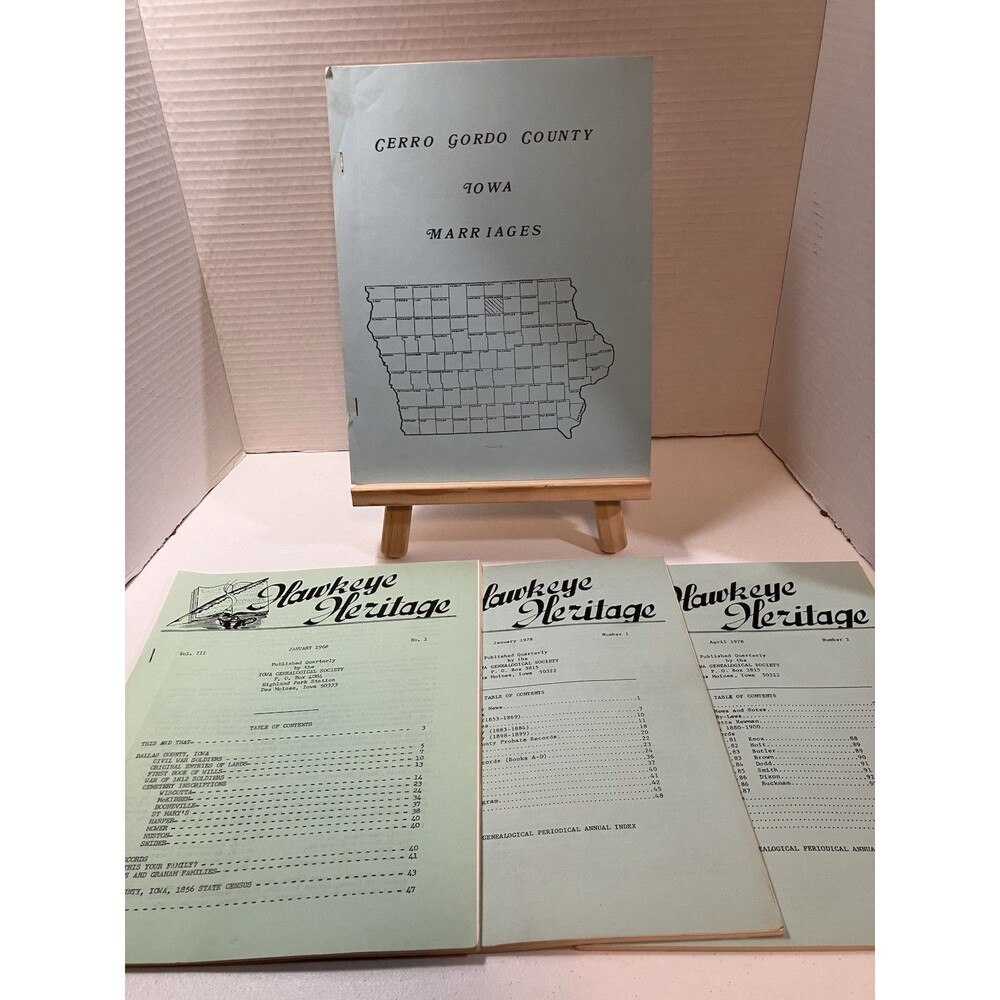 CERRO GORDO COUNTY
IOWA
MARRIAGES
Hawkeye
Heritage
Vol. III
JANUARY 1968
No. 1
Published Quarterly
by the
IOWA GENEALOGICAL SOCIETY
P. O. Box 4064
Highland Park Station
Des Moines, Iowa 50333
TABLE OF CONTENTS
THIS AND THAT 3
DALLAS COUNTY, IOWA 5
CIVIL WAR SOLDIERS 7
ORIGINAL ENTRIES OF LANDS 10
FIRST BOOK OF WILLS 13
WAR OF 1812 SOLDIERS 14
CEMETERY INSCRIPTIONS 23
WISCOTTA 24
McKIBBEN 34
BOONEVILLE 37
ST MARY'S 38
HARPER 40
MOWER 40
HUSTON
SNIDER
CORDS 40
THIS YOUR FAMILY? 41
S AND GRAHAM FAMILIES 43
UNTY, IOWA, 1856 STATE CENSUS 47
Hawkeye
Heritage
January 1978
Number 1
Published Quarterly
by the
IOWA GENEALOGICAL SOCIETY
P. O. Box 3815
Des Moines, Iowa 50322
TABLE OF CONTENTS
News 1
(1853-1869) 7
10
(1883-1884) 11
(1898-1899) 18
unty Probate Records 20
23
24
cords (Books A-D) 36
37
40
41
42
gram 45
48
GENEALOGICAL PERIODICAL ANNUAL INDEX
Hawkeye
Heritage
April 1978
Number 2
Published Quarterly
by the
IOWA GENEALOGICAL SOCIETY
P. O. Box 3815
Des Moines, Iowa 50322
TABLE OF CONTENTS
News and Notes
By-Laws
tta Newman
1880-1900
ords
81 Knox 88
82 Hoit 89
83 Butler 89
83 Brown 90
84 Dodd 91
85 Smith 91
86 Dixon 92
86 Bucknam
87
EALOGICAL PERIODICAL ANNUA